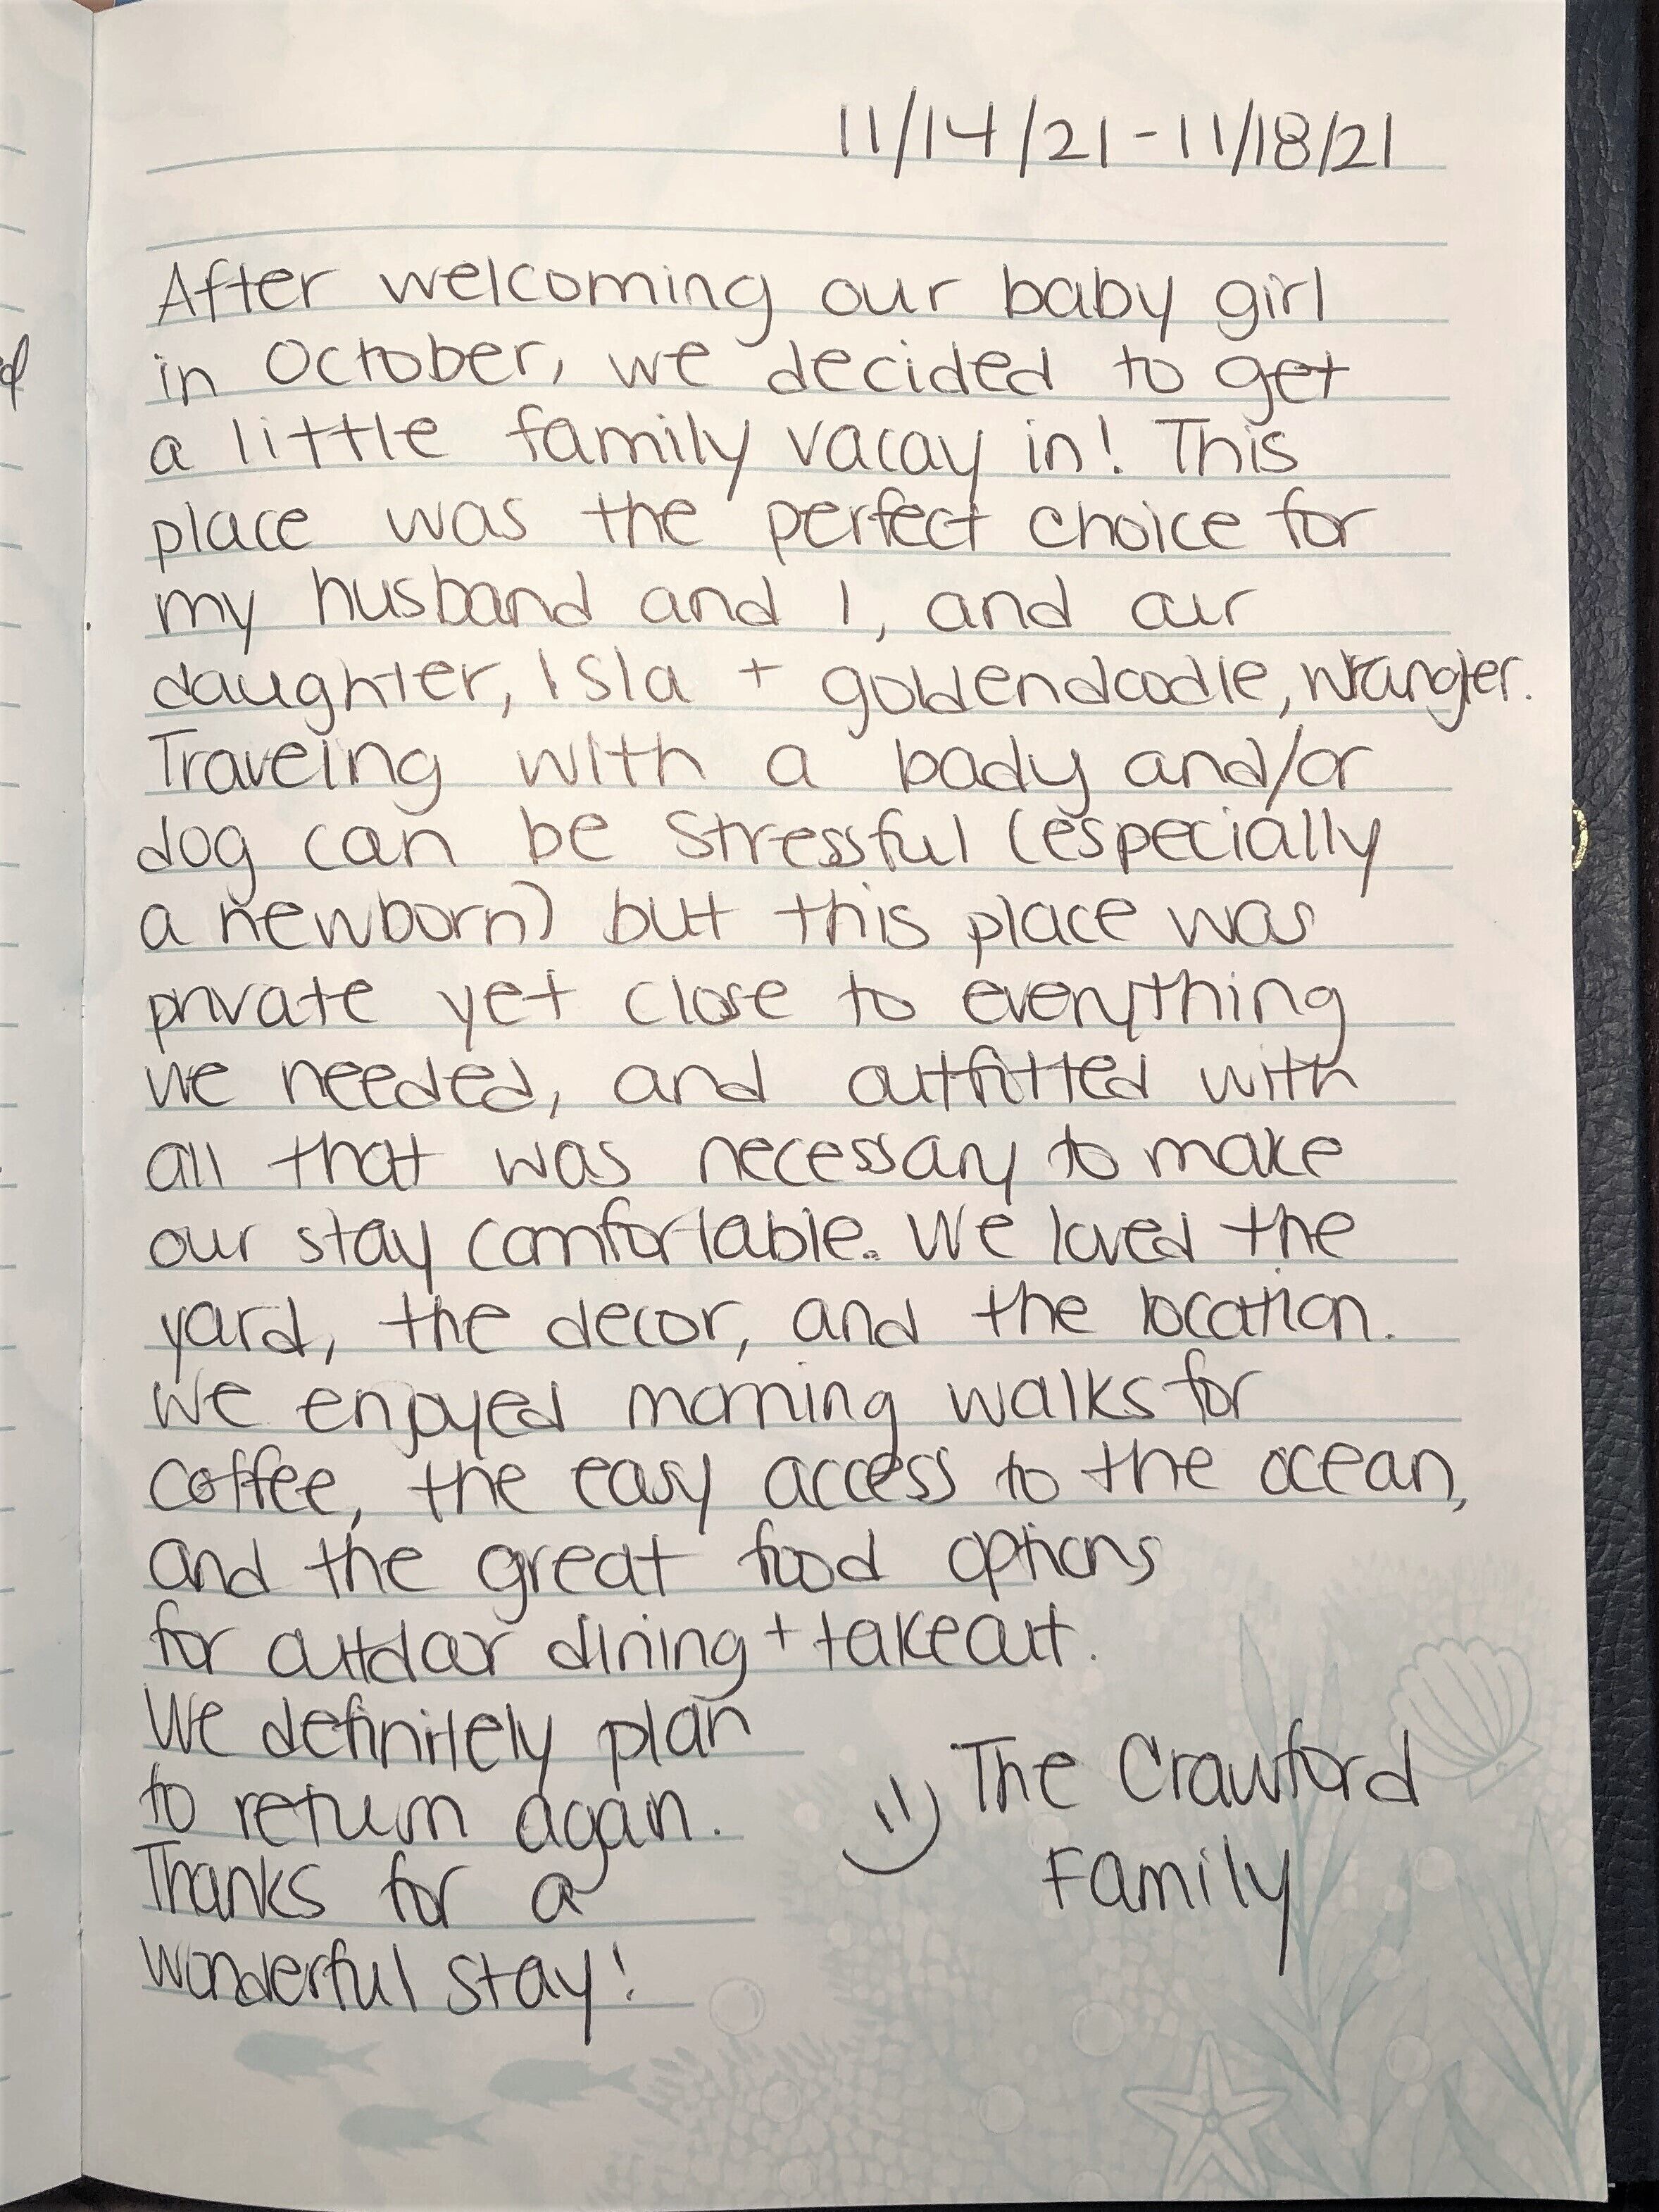 11/14/21 - 11/18/21
After welcoming our baby girl
in October, we decided to get
a little family vacay in! This
place was the perfect choice for
my husband and I, and our
daughter, Isla + goldendoodle, Wrangler.
Traveling with a bady and/or
dog can be stressful (especially
a newborn) but this place was
private yet close to everything
we needed, and outfitted with
all that was necessary to make
our stay comfortable. We loved the
yard, the decor, and the location.
We enjoyed morning walks for
coffee, the easy access to the ocean,
and the great food options
for outdoor dining + takeout.
We definitely plan
to return again.
Thanks for a
wonderful stay!
The Crawford
Family